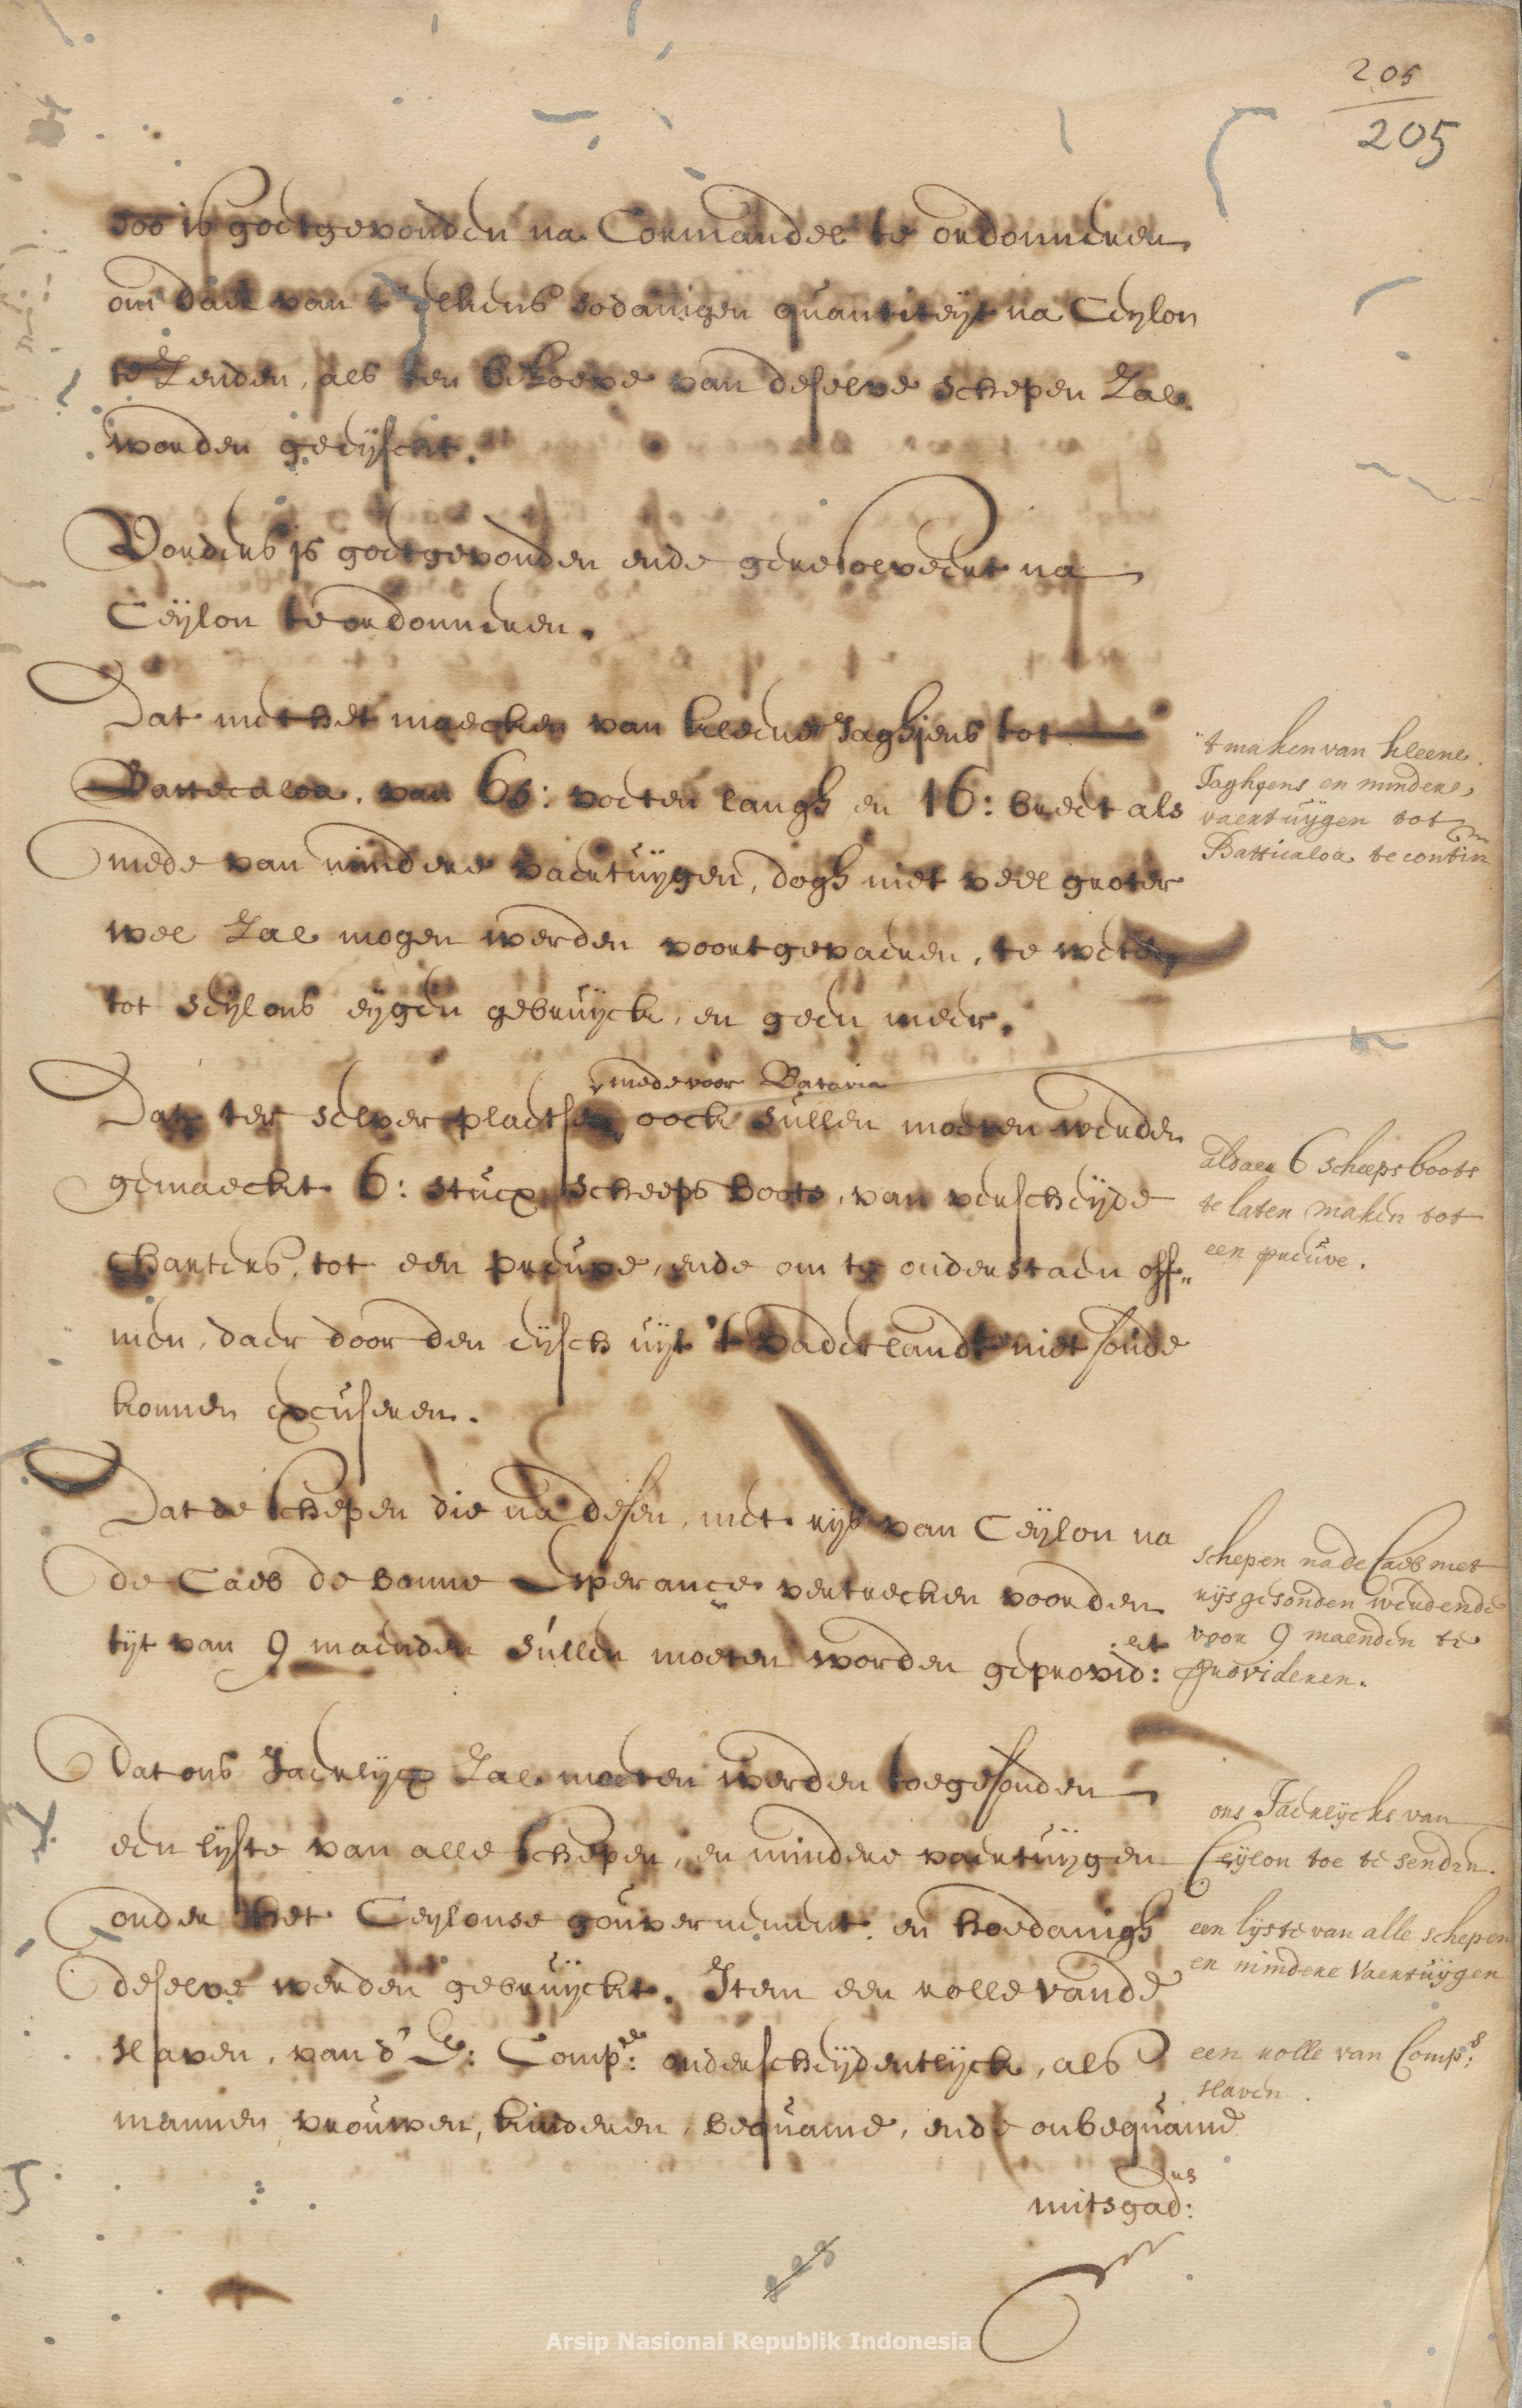 205
205
soo is goetgevonden na Cormandel te ordonneren
om daer van t'elkens sodanigen quantiteÿt na Ceylon
te Zenden, als ten behoeve van deselve schepen Zal
worden geeÿscht.
Vorders is goetgevonden ende geresolveert na
Ceÿlon te ordonneren.
Dat met het maecken van kleene Jaghjens tot
Battecaloa, van 65: voeten langh en 16: breet als
mede van mindere vaertuÿgen, dogh niet veel groter
wel Zal mogen werden voortgevaeren, te weten
tot Seÿlons eÿgen gebruÿck, en geen meer.
't maken van kleene
Jaghjens en mindere
vaertuÿgen tot
Batticaloa te contin
mede voor Batavia
Dat ter selver plaetsen oock sullen moeten werden
gemaeckt 6: stucx scheeps boots, van verscheÿde
charters, tot een preuve, ende om te onderstaen off
men, daer door den eÿsch uÿt 't vaderlandt niet soude
konnen excuseren.
aldaer 6 scheeps boots
te laten maken tot
een preuve.
Dat de schepen die na desen, met rijs van Ceÿlon na
de Caeb de bonne Esperançe vertrecken voor den
tijt van 9 maenden sullen moeten worden geprovid:eert
schepen na de Caeb met
rijs gesonden werdende
voor 9 maenden te
provideren.
Dat ons Jaerlÿcx Zal moeten werden toegesonden
een lÿste van alle schepen, en mindere vaertuÿgen
onder het Ceÿlonse gouvernement, en hoedanigh
deselve werden gebruÿckt. Item een rolle vande
slaven, van d' E: Compe: onderscheÿdentlÿck, als
mannen, vrouwen, kinderen, bequame, ende onbequame
ons Jaerlÿcks van
Ceÿlon toe te senden.
een lÿste van alle schepen
en mindere Vaertuÿgen
een rolle van Comps:
slaven.
mitsgad:rs
Arsip Nasional Republik Indonesia